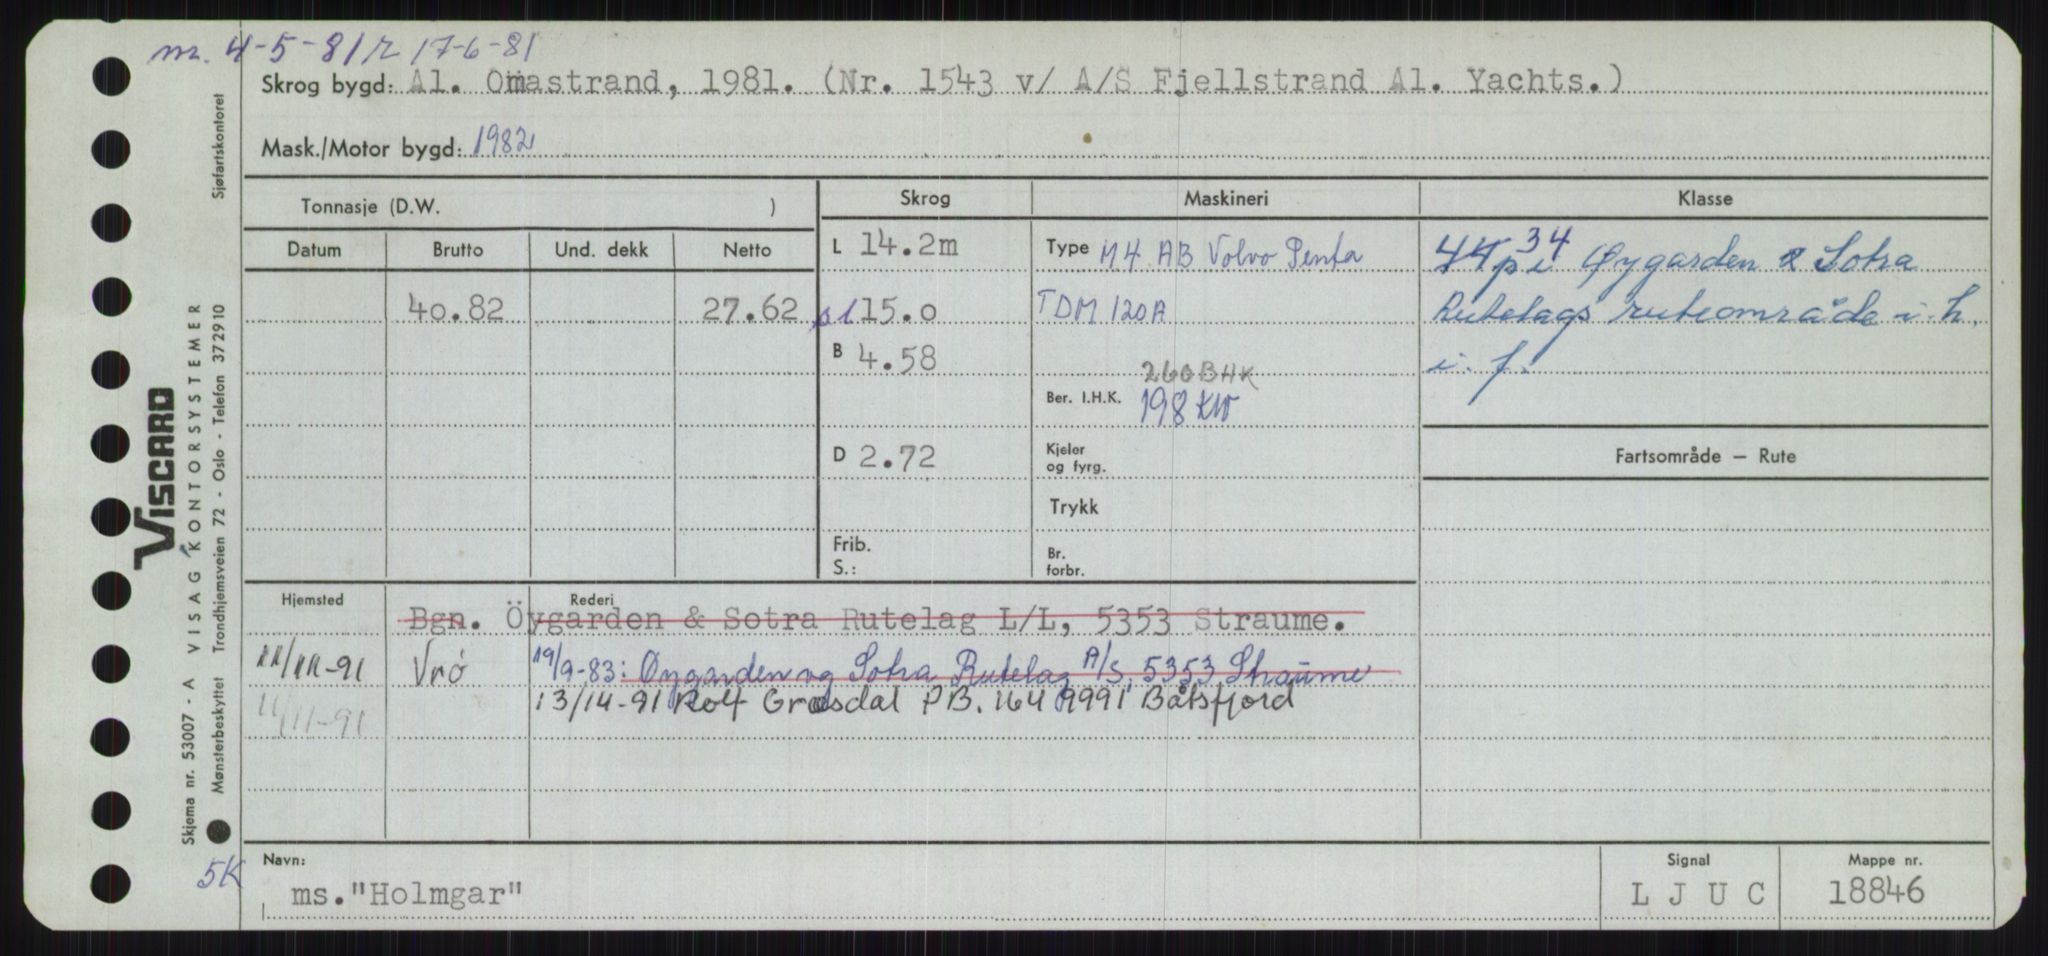 m. 4-5-81 r 17-6-81
Skrog bygd: Al. Omastrand, 1981. (Nr. 1543 v/ A/S Fjellstrand Al. Yachts.)
Mask./Motor bygd: 1982
Tonnasje (D.W. )
Skrog
Maskineri
Klasse
Datum Brutto Und. dekk Netto
40.82 27.62
L 14.2m
15.0
B 4.58
D 2.72
Frib.
S.:
Type M4 AB Volvo Penta
TDM 120A
260 BHK
Ber. I.H.K. 198 KW
Kjeler
og fyrg.
Trykk
Br.
forbr.
34
44 p i Øygarden & Sotra
Rutelags ruteområde i. h.
i. f.
Fartsområde – Rute
Hjemsted Rederi
Bgn. Öygarden & Sotra Rutelag L/L, 5353 Straume.
11/11-91 Vrö 19/9-83: Øygarden og Sotra Rutelag A/S, 5353 Straume
11/11-91 13/14-91 Rolf Grosdal P.B. 164 9991 Båtsfjord
Navn:
ms."Holmgar"
Signal
L J U C
Mappe nr.
18846
5K
VISCARD
Skjema nr. 53007 - A VISAG KONTORSYSTEMER
Mønsterbeskyttet Trondhjemsveien 72 - Oslo - Telefon 372910 Sjøfartskontoret